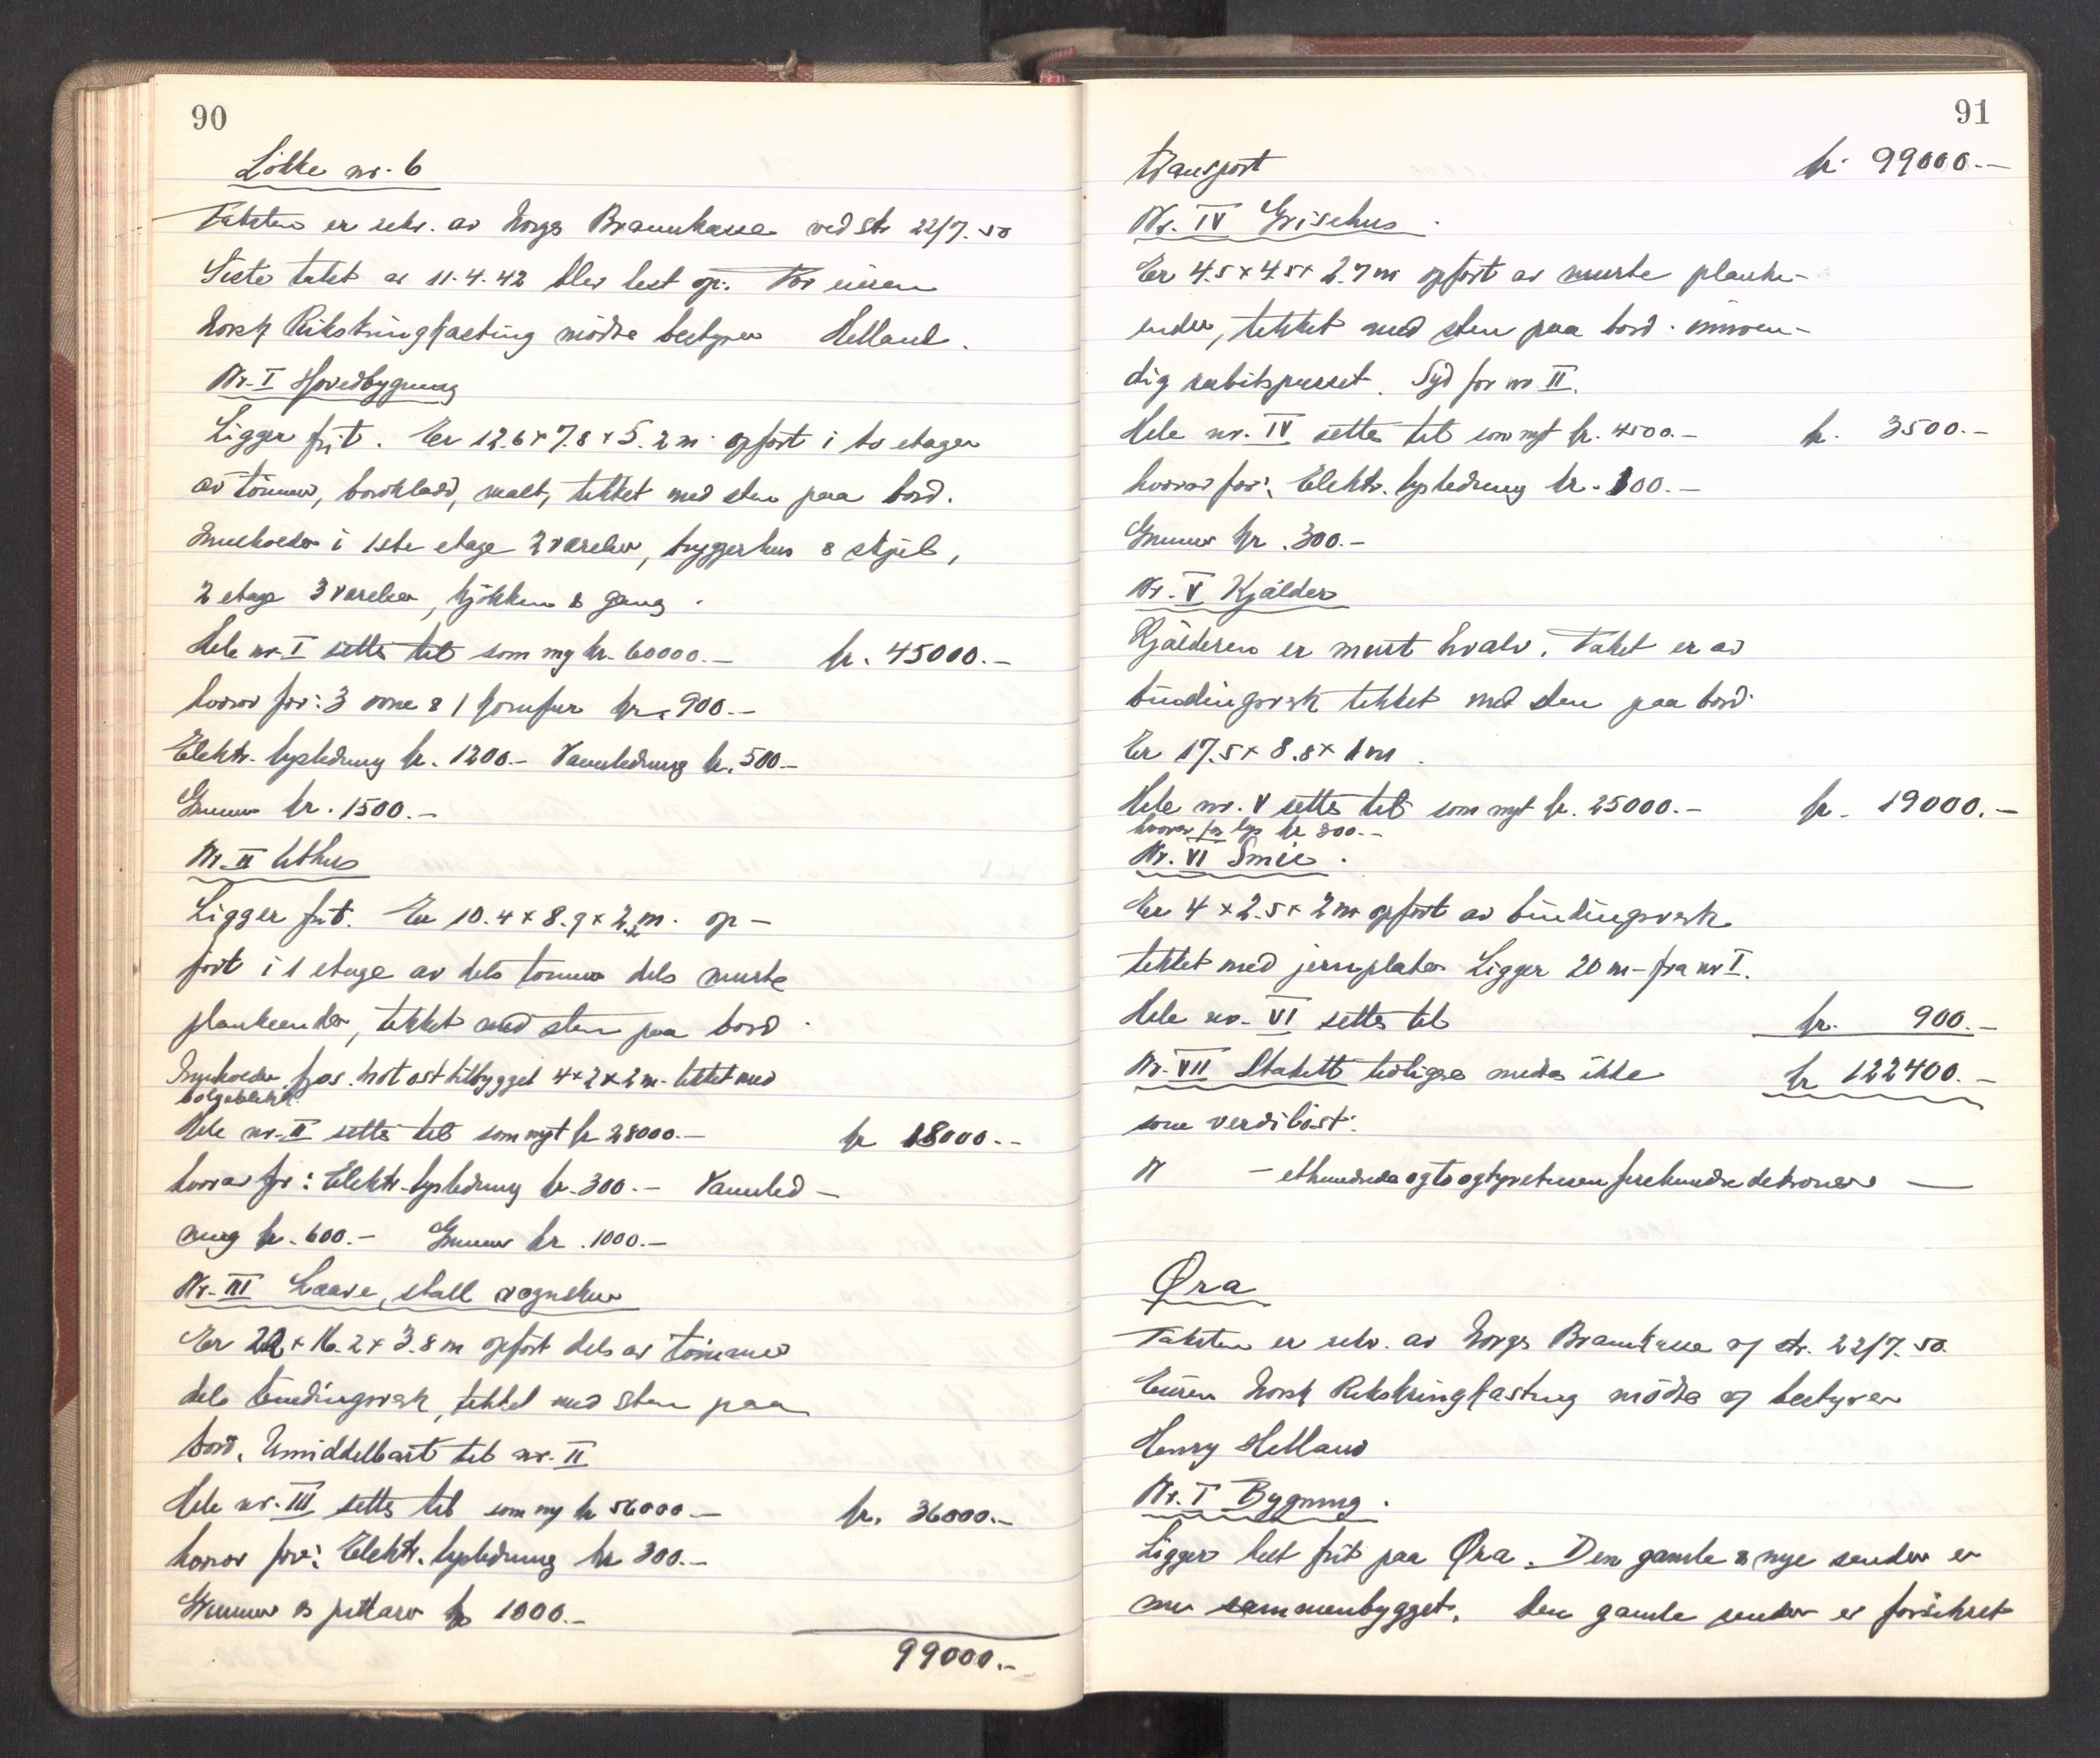 90
Løkke nr. 6
Taksten er rekv. av Norges Brannkasse ved skr 22/7. 50
Siste takst av 11.4.42 blev lest op. For eieren
Norsk Rikskringkasting møtte bestyrer Helland.
Nr. I Hovedbygning
Ligger frit. Er 12.6 x 7.8 x 5.2 m opført i to etager
av tømmer, bordkledd, malt, tekket med sten paa bord.
Inneholder i 1ste etage 2 værelser, bryggerhus & skjul,
2 etage 3 værelser, kjøkken & gang.
Hele nr. I settes til som ny kr. 60000.- kr. 45000.-
hvorav for: 3 ovne & 1 komfur kr. 900.-
Elektr. lysledning kr. 1200.- Vannledning kr. 500.-
Grunnmur kr. 1500.-
Nr. II Uthus
Ligger frit. Er 10.4 x 8.9 x 2.2 m. op-
ført i 1 etage av dels tømmer dels murte
plankeender, tekket med sten paa bord.
Inneholder fjøs. Mot øst tilbygget 4 x 2 x 2 m. tekket med
bølgeblekk.
Hele nr. II settes til som nyt kr 28000.- kr 18000.-
hvorav for: Elektr. lysledning kr. 300.- Vannled-
ning kr. 600.- Grunnmur kr. 1000.-
Nr. III Laave, stall vognskur
Er 22 x 16.2 x 3.8 m opført dels av tømmer
dels bindingsverk, tekket med sten paa
bord. Umiddelbart til nr. II
Hele nr. III settes til som ny kr 56000.- kr. 36000.-
hvorav for: Elektr. lysledning kr 300.-
Grunnmur & pillarer kr 1000.-
99000.-
91
Transport kr. 99000.-
Nr. IV Grisehus.
Er 4.5 x 4.5 x 2.7 m opført av murte planke-
ender, tekket med sten paa bord. innven-
dig rabitspusset. Syd for nr II.
Hele nr. IV settes til som nyt kr. 4500.- kr. 3500.-
hvorav for: Elektr. lysledning kr. 100.-
Grunnmur kr. 300.-
Nr. V Kjælder
Kjælderen er murt hvalv. Taket er av
bindingsverk tekket med sten paa bord.
Er 17.5 x 8.8 x 1 m.
Hele nr. V settes til som nyt kr. 25000.- kr. 19000.-
hvorav for lys kr 200.-
Nr. VI Smie.
Er 4 x 2.5 x 2 m opført av bindingsverk
tekket med jernplater Ligger 20 m fra nr I.
Hele nr. VI settes til kr. 900.-
Nr. VII Stakitt medtas ikke kr 122400.-
som verdiløst.
- ethundredeogtoogtyvetusenfirehundredekroner -
Øra
Taksten er rekv. av Norges Brannkasse af skr. 22/7. 50.
Eieren Norsk Rikskringkasting møtte af bestyrer
Henry Helland
Nr. I Bygning.
Ligger helt frit paa Øra. Den gamle & nye sender er
nu sammenbygget. Den gamle sender er forsikret